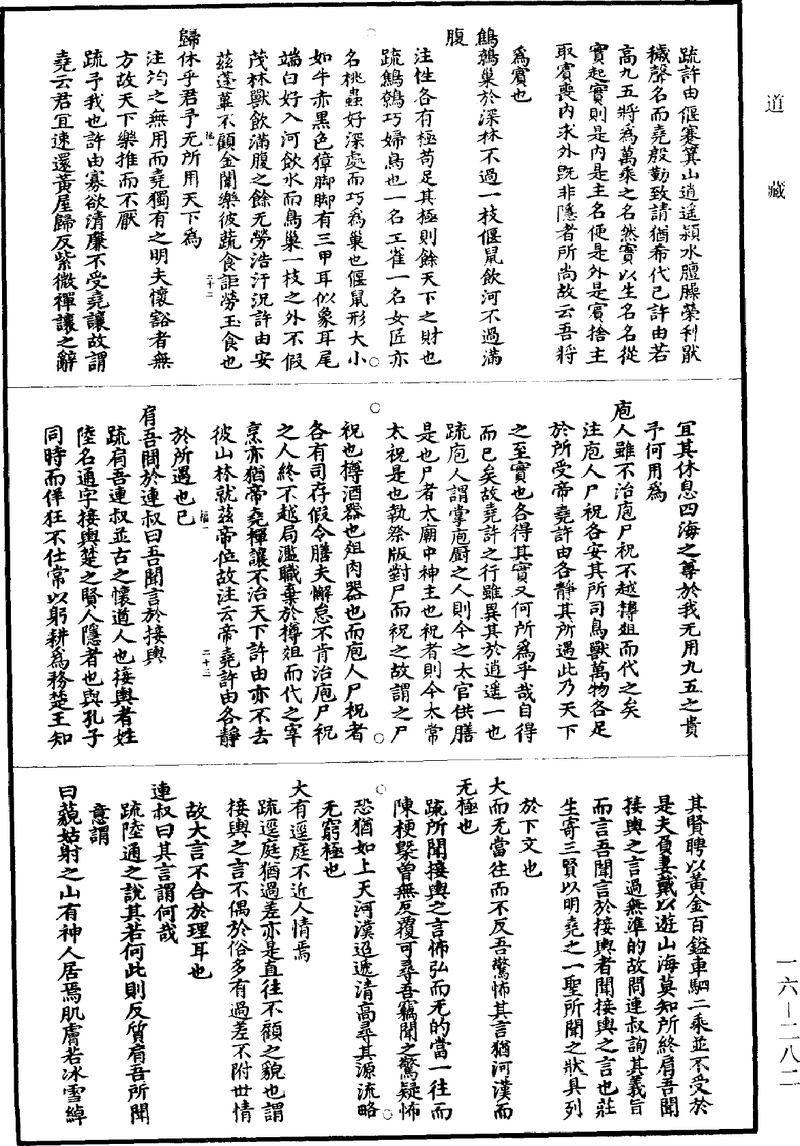 道藏
疏許由偃蹇箕山逍遙潁水膻臊榮利厭
穢聲名而堯殷勤致請猶希代己許由若
高九五將為萬乘之名然實以生名名從
實起實則是內是主名便是外是賓捨主
取賓喪內求外既非隱者所尚故云吾將
為賓也
鷦鷯巢於深林不過一枝偃鼠飲河不過滿
腹
注性各有極苟足其極則餘天下之財也
疏鷦鷯巧婦鳥也一名工雀一名女匠亦
名桃蟲好深處而巧為巢也偃鼠形大小
如牛赤黑色獐脚脚有三甲耳似象耳尾
端白好入河飲水而鳥巢一枝之外不假
茂林獸飲滿腹之餘无勞浩汗況許由安
茲蓬蓽不顧金闈樂彼蔬食詎勞玉食也
歸休乎君予无所用天下為
注均之無用而堯獨有之明夫懷豁者無
方故天下樂推而不厭
疏予我也許由寡欲清廉不受堯讓故謂
堯云君宜速還黃屋歸反紫微禪讓之辭
宜其休息四海之尊於我无用九五之貴
予何用為
庖人雖不治庖尸祝不越樽俎而代之矣
注庖人尸祝各安其所司鳥獸萬物各足
於所受帝堯許由各靜其所遇此乃天下
之至實也各得其實又何所為乎哉自得
而已矣故堯許之行雖異其於逍遙一也
疏庖人謂掌庖廚之人則今之太官供膳
是也尸者太廟中神主也祝者則今太常
太祝是也執祭版對尸而祝之故謂之尸
祝也樽酒器也俎肉器也而庖人尸祝者
各有司存假令膳夫懈怠不肯治庖尸祝
之人終不越局濫職棄於樽俎而代之宰
烹亦猶帝堯禪讓不治天下許由亦不去
彼山林就茲帝位故注云帝堯許由各靜
於所遇也已
肩吾問於連叔曰吾聞言於接輿
疏肩吾連叔並古之懷道人也接輿者姓
陸名通字接輿楚之賢人隱者也與孔子
同時而佯狂不仕常以躬耕為務楚王知
其賢聘以黃金百鎰車駟二乘並不受於
是夫負妻戴以遊山海莫知所終肩吾聞
接輿之言過無準的故問連叔詢其義旨
而言吾聞言於接輿者聞接輿之言也莊
生寄三賢以明堯之一聖所聞之狀具列
於下文也
大而无當往而不反吾驚怖其言猶河漢而
无極也
疏所聞接輿之言怖弘而无的當一往而
陳梗槩曾無反覆可尋吾竊聞之驚疑怖
恐猶如上天河漢迢遞清高尋其源流略
无窮極也
大有逕庭不近人情焉
疏逕庭猶過差亦是直往不顧之貌也謂
接輿之言不偶於俗多有過差不附世情
故大言不合於理耳也
連叔曰其言謂何哉
疏陸通之說其若何此則反質肩吾所聞
意謂
曰藐姑射之山有神人居焉肌膚若冰雪綽
一六—二八二